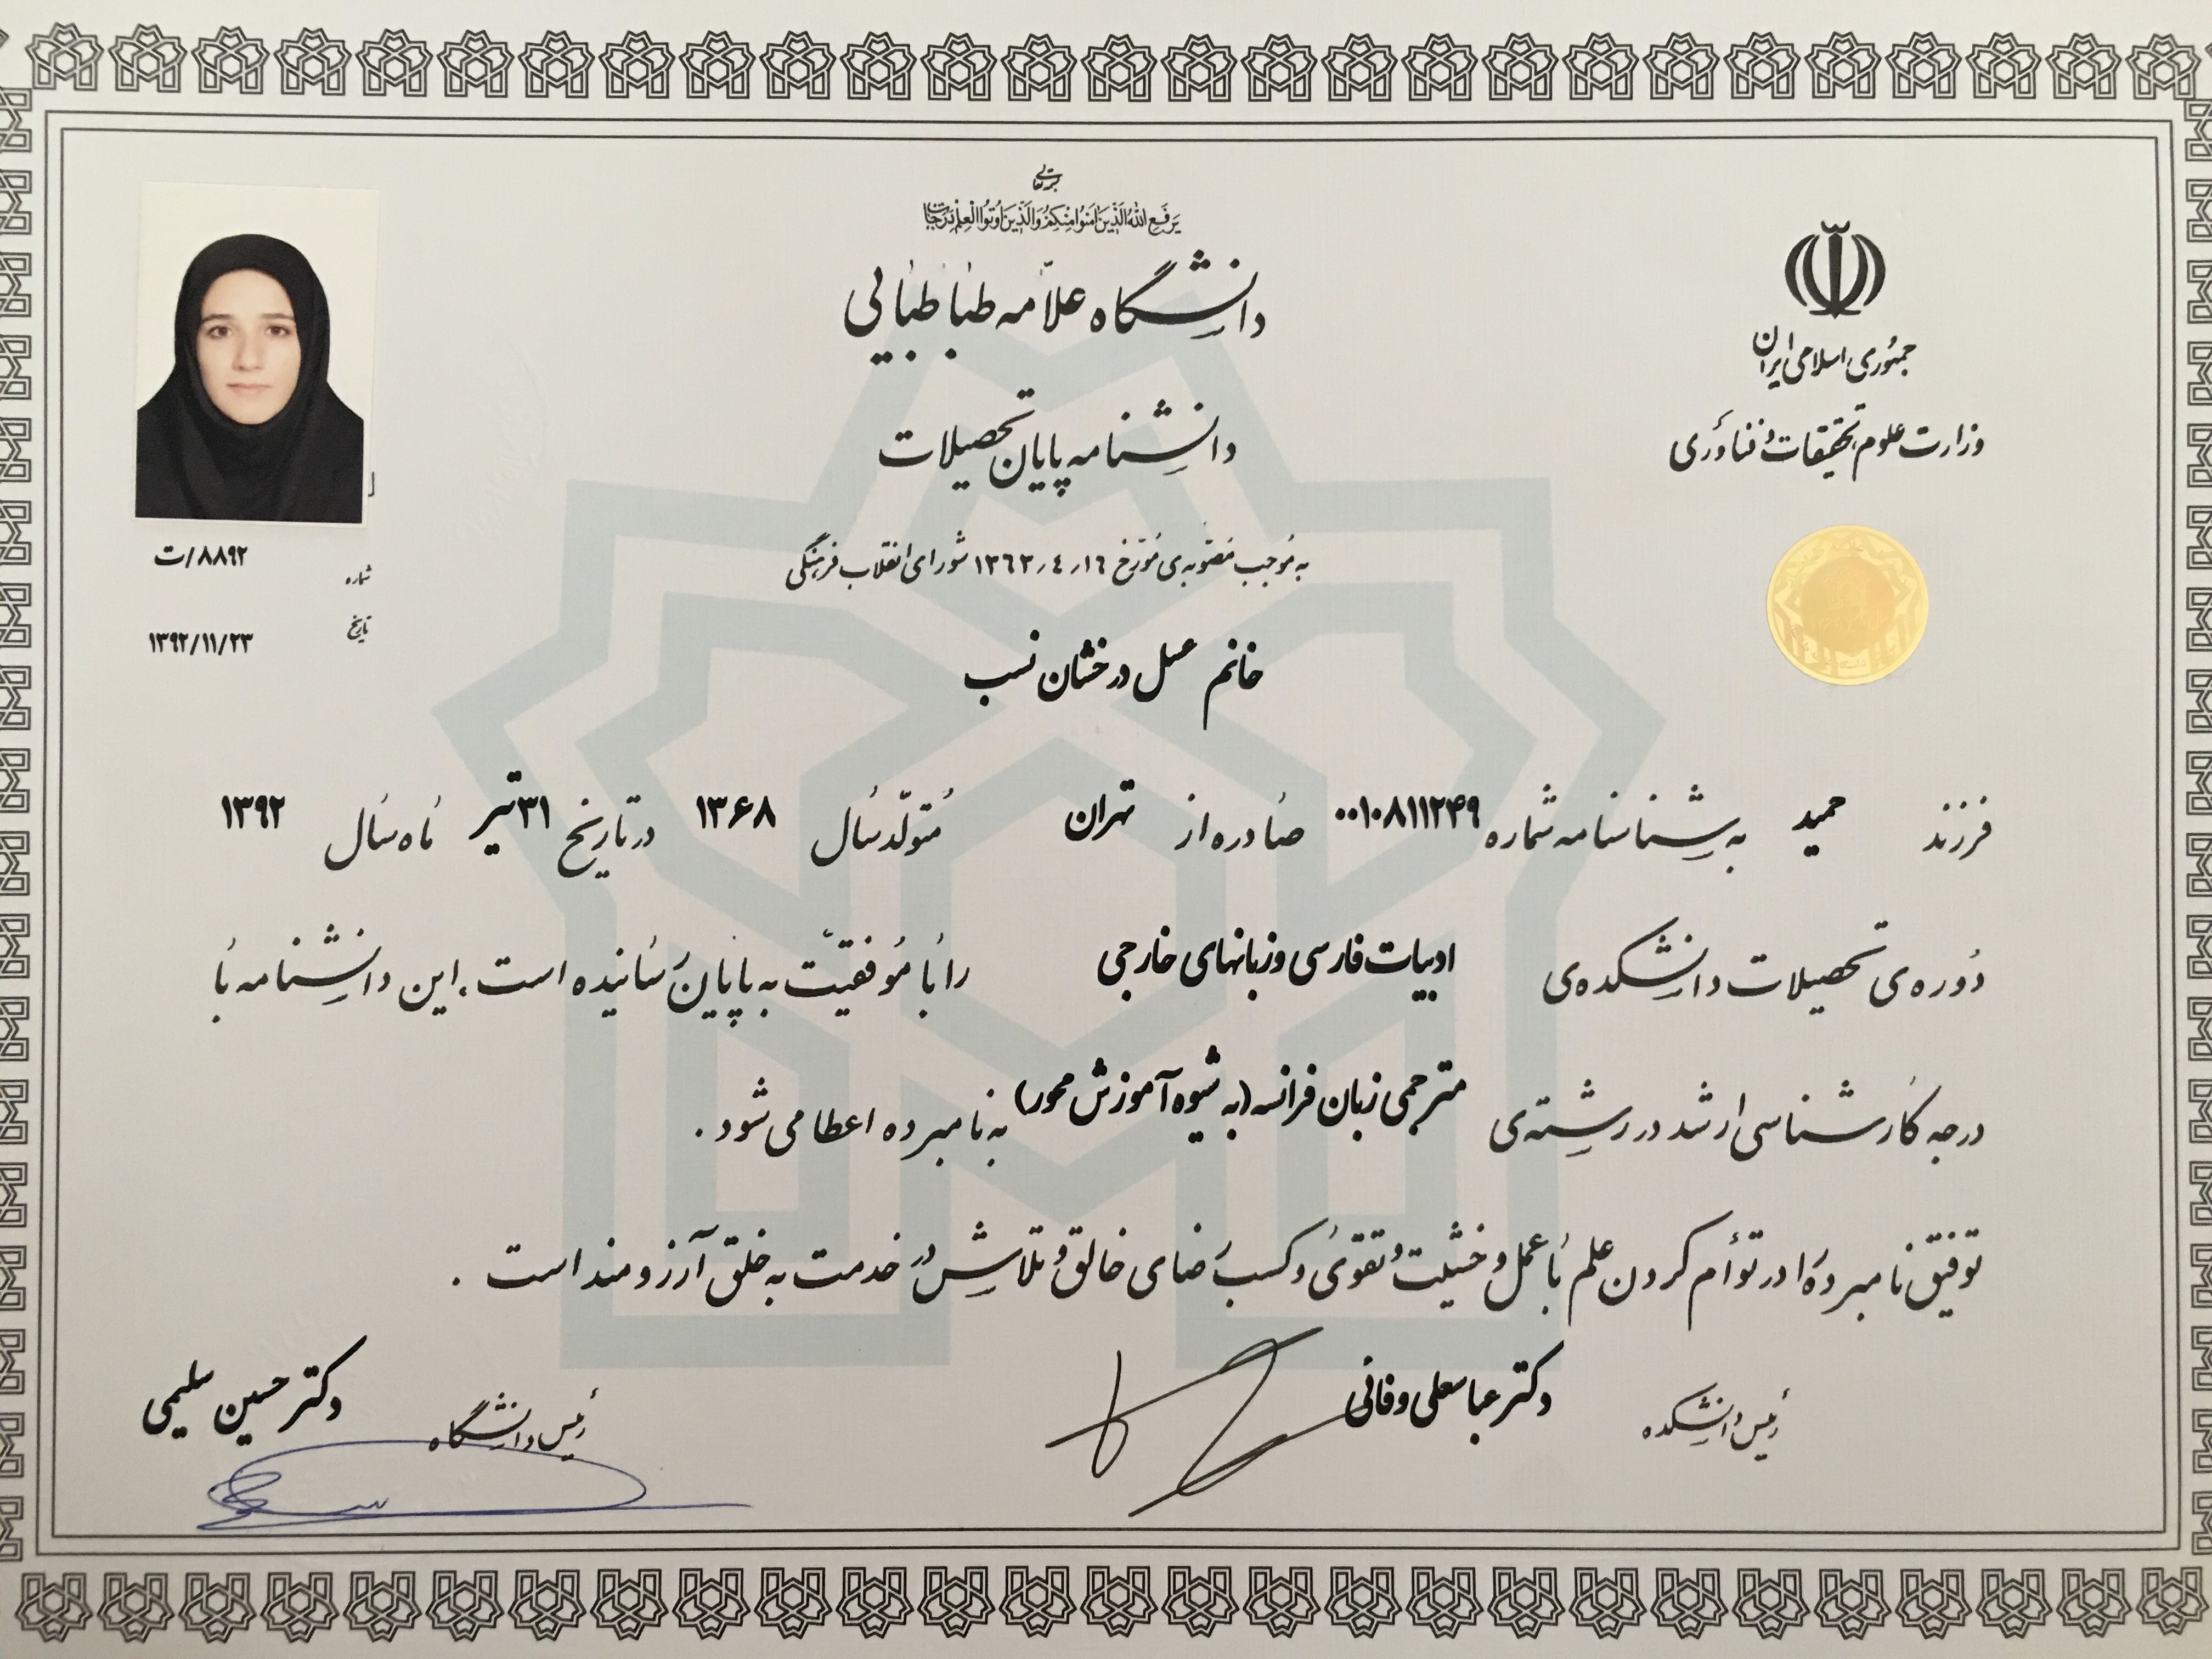 برتعالی
یَرفَعِ اللهُ الَّذینَ آمَنوا مِنکُم وَالَّذینَ اُوتُوا العِلمَ دَرَجاتٍ
دانشگاه علّامه طباطبائی
جمهوری اسلامی ایران
وزارت علوم، تحقیقات و فنّاوری
دانشنامه پایان تحصیلات
به موجب مصوّبه‌ی مورّخ ۱۳۶۳٫۴٫۱۶ شورای انقلاب فرهنگی
شماره ۸۸۹۲/ت
تاریخ ۱۳۹۲/۱۱/۲۳
خانم عسل درخشان نسب
فرزند حمید به شناسنامه شماره ۰۰۱۰۸۱۱۲۴۹ صادره از تهران متولّد سال ۱۳۶۸ در تاریخ ۳۱ تیر ماه سال ۱۳۹۲
دوره‌ی تحصیلات دانشکده‌ی ادبیات فارسی و زبانهای خارجی را با موفقیّت به پایان رسانیده است. این دانشنامه با
درجه کارشناسی ارشد در رشته‌ی مترجمی زبان فرانسه (به شیوه آموزش محور) به نامبرده اعطا می شود.
توفیق نامبرده را در توأم کردن علم با عمل و خشیّت و تقوی و کسب رضای خالق و تلاش در خدمت به خلق آرزومند است.
رئیس دانشکده دکتر عباسعلی وفائی
رئیس دانشگاه دکتر حسین سلیمی